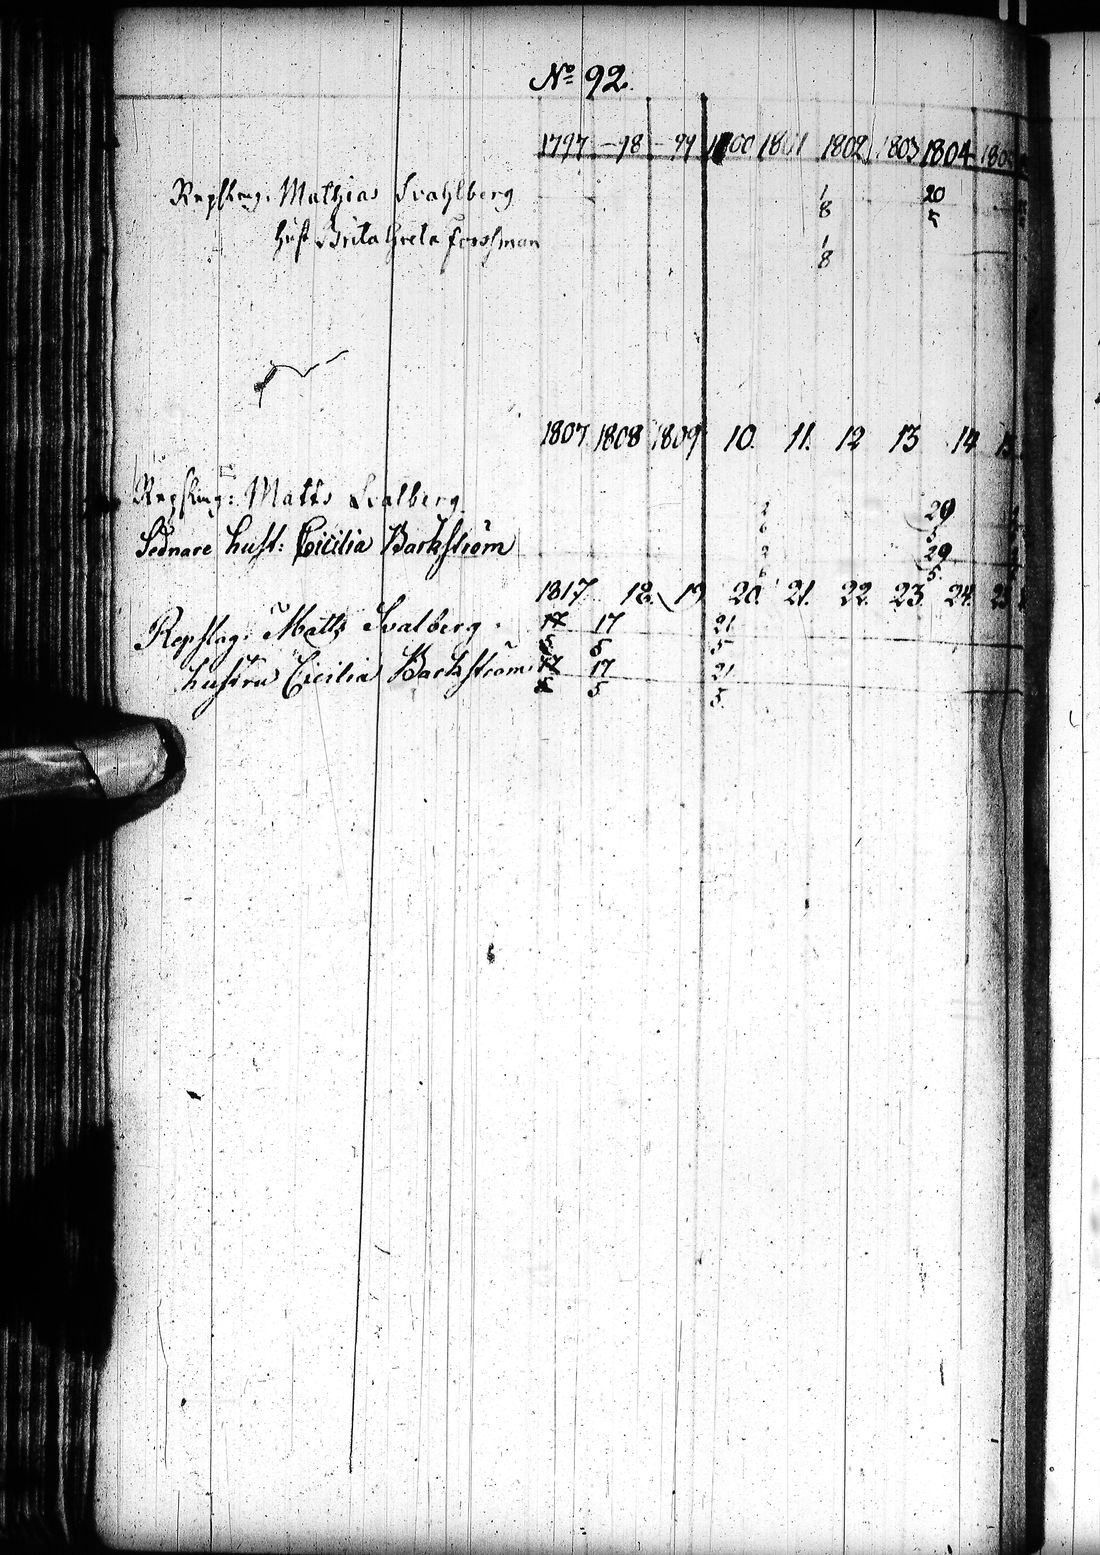 No 92.
1797 -98 -99 1800 1801 1802 1803 1804 1805
Repslag. Mathias Svahlberg 1/8 20/5
Hust Brita Greta Forssman 1/8
1807 1808 1809 10. 11. 12 13 14
Repslag: Matts Svalberg 2/6 29/5
Sednare hust: Cicilia Backström 2/6 29/5
1817 18. 19 20. 21. 22. 23. 24. 25
Repslag: Matts Svalberg. 17/5 17/5 21/5
hustru Cicilia Backström 17/5 17/5 21/5